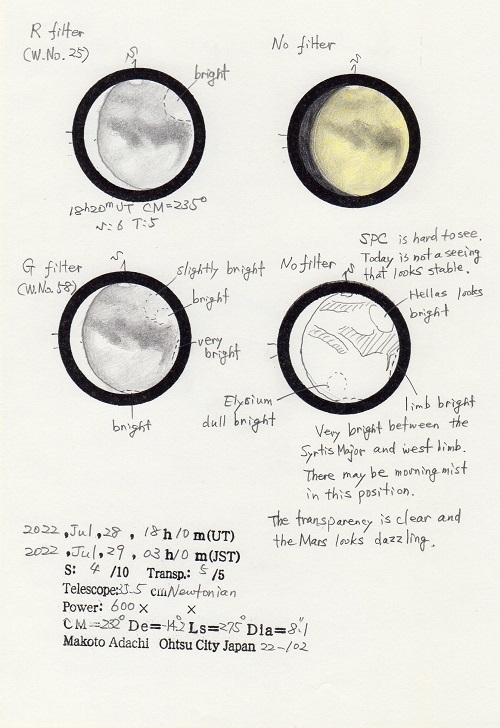 R filter
(W.No.25)
S
bright
18h20m UT CM=235°
S:6 T:5
No filter
S
G filter
(W.No.58)
S
slightly bright
bright
very
bright
bright
SPC is hard to see.
Today is not a seeing
that looks stable.
No filter
S
Hellas looks
bright
Elysium
dull bright
limb bright
Very bright between the
Syrtis Major and west limb.
There may be morning mist
in this position.
The transparency is clear and
the Mars looks dazzling.
2022, Jul, 28, 18h10m(UT)
2022, Jul, 29, 03h10m(JST)
S: 4 /10 Transp.: 5 /5
Telescope: cm Newtonian
Power: 600 × ×
CM=232° De=-14.2° Ls=275° Dia=8".1
Makoto Adachi Ohtsu City Japan 22-102